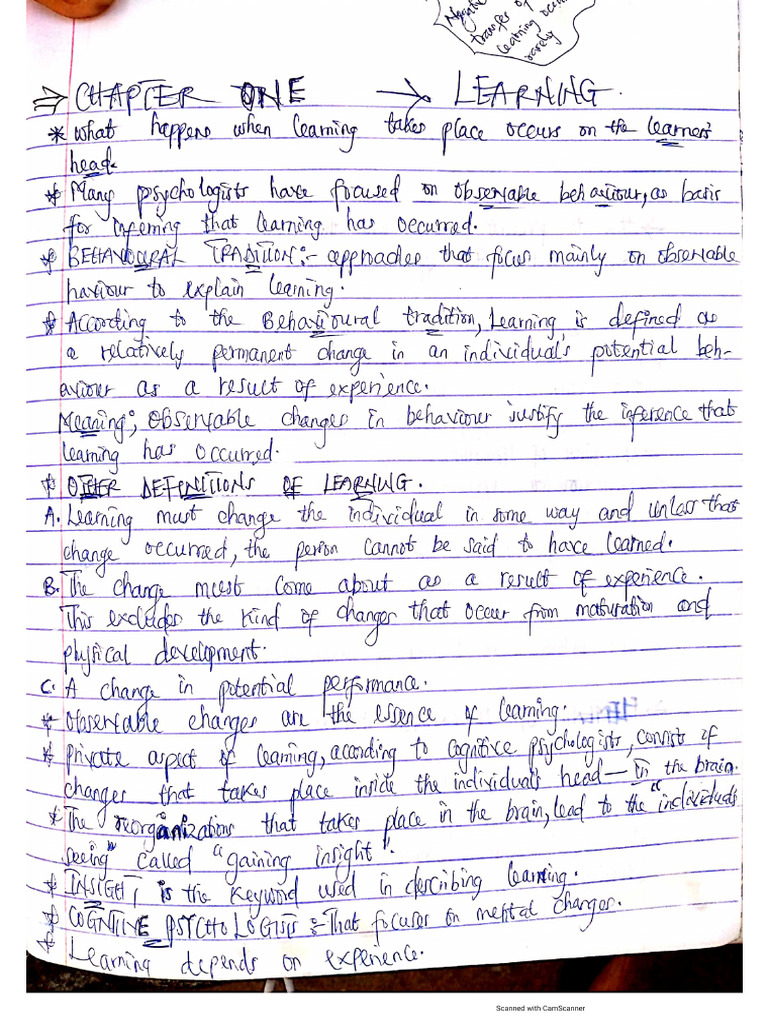 Negative
transfer of
learning occurs
rarely
⇒ CHAPTER ONE → LEARNING.
* What happens when learning takes place occurs on the learner's
head.
* Many psychologists have focused on observable behaviour, as basis
for inferring that learning has occurred.
* BEHAVIOURAL TRADITION:- approaches that focus mainly on observable
haviour to explain learning.
* According to the Behavioural tradition, Learning is defined as
a relatively permanent change in an individual's potential beh-
aviour as a result of experience.
Meaning; Observable changes in behaviour justify the inference that
learning has occurred.
* OTHER DEFINITIONS OF LEARNING.
A. Learning must change the individual in some way and unless that
change occurred, the person cannot be said to have learned.
B. The change must come about as a result of experience.
This excludes the kind of changes that occur from maturation and
physical development.
C. A change in potential performance.
* Observable changes are the essence of learning.
* Private aspect of learning, according to cognitive psychologists, consists if
changes that takes place inside the individual's head — in the brain.
* The reorganizations that takes place in the brain, lead to the "individuals
seeing" called "gaining insight".
* INSIGHT, is the keyword used in describing learning.
* COGNITIVE PSYCHOLOGISTS :- That focuses on mental changes.
* Learning depends on experience.
Scanned with CamScanner